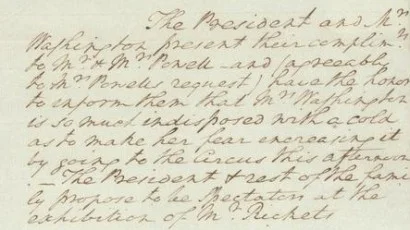 The President and Mrs
Washington present their complimts
to Mr & Mrs Powell - and (agreeably
to Mrs Powells request) have the honor
to inform them that Mrs Washington
is so much indisposed with a cold
as to make her fear encreasing it
by going to the circus this afternoon
. — The President & rest of the fami
ly propose to be Spectators at the
exhibition of Mr. Rickets